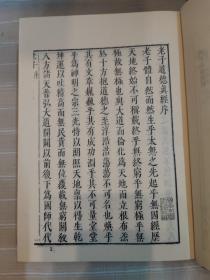 老子道德真經序
老子體自然而然生乎太無之先起乎無因經歷
天地終始不可稱載終乎無終窮乎無窮極乎無
極故無極也與大道而倫化為天地而立根布氣
於十方抱道德之至淳浩浩蕩蕩不可名也煥乎
其有文章巍巍乎其有成功淵乎其不可量堂堂
乎為神明之宗三光持以朗照天地稟以得生乾
坤運以吐精高而無民貴而無位覆載無窮教
八方諸天普弘大道開闢以前復下為國師代代